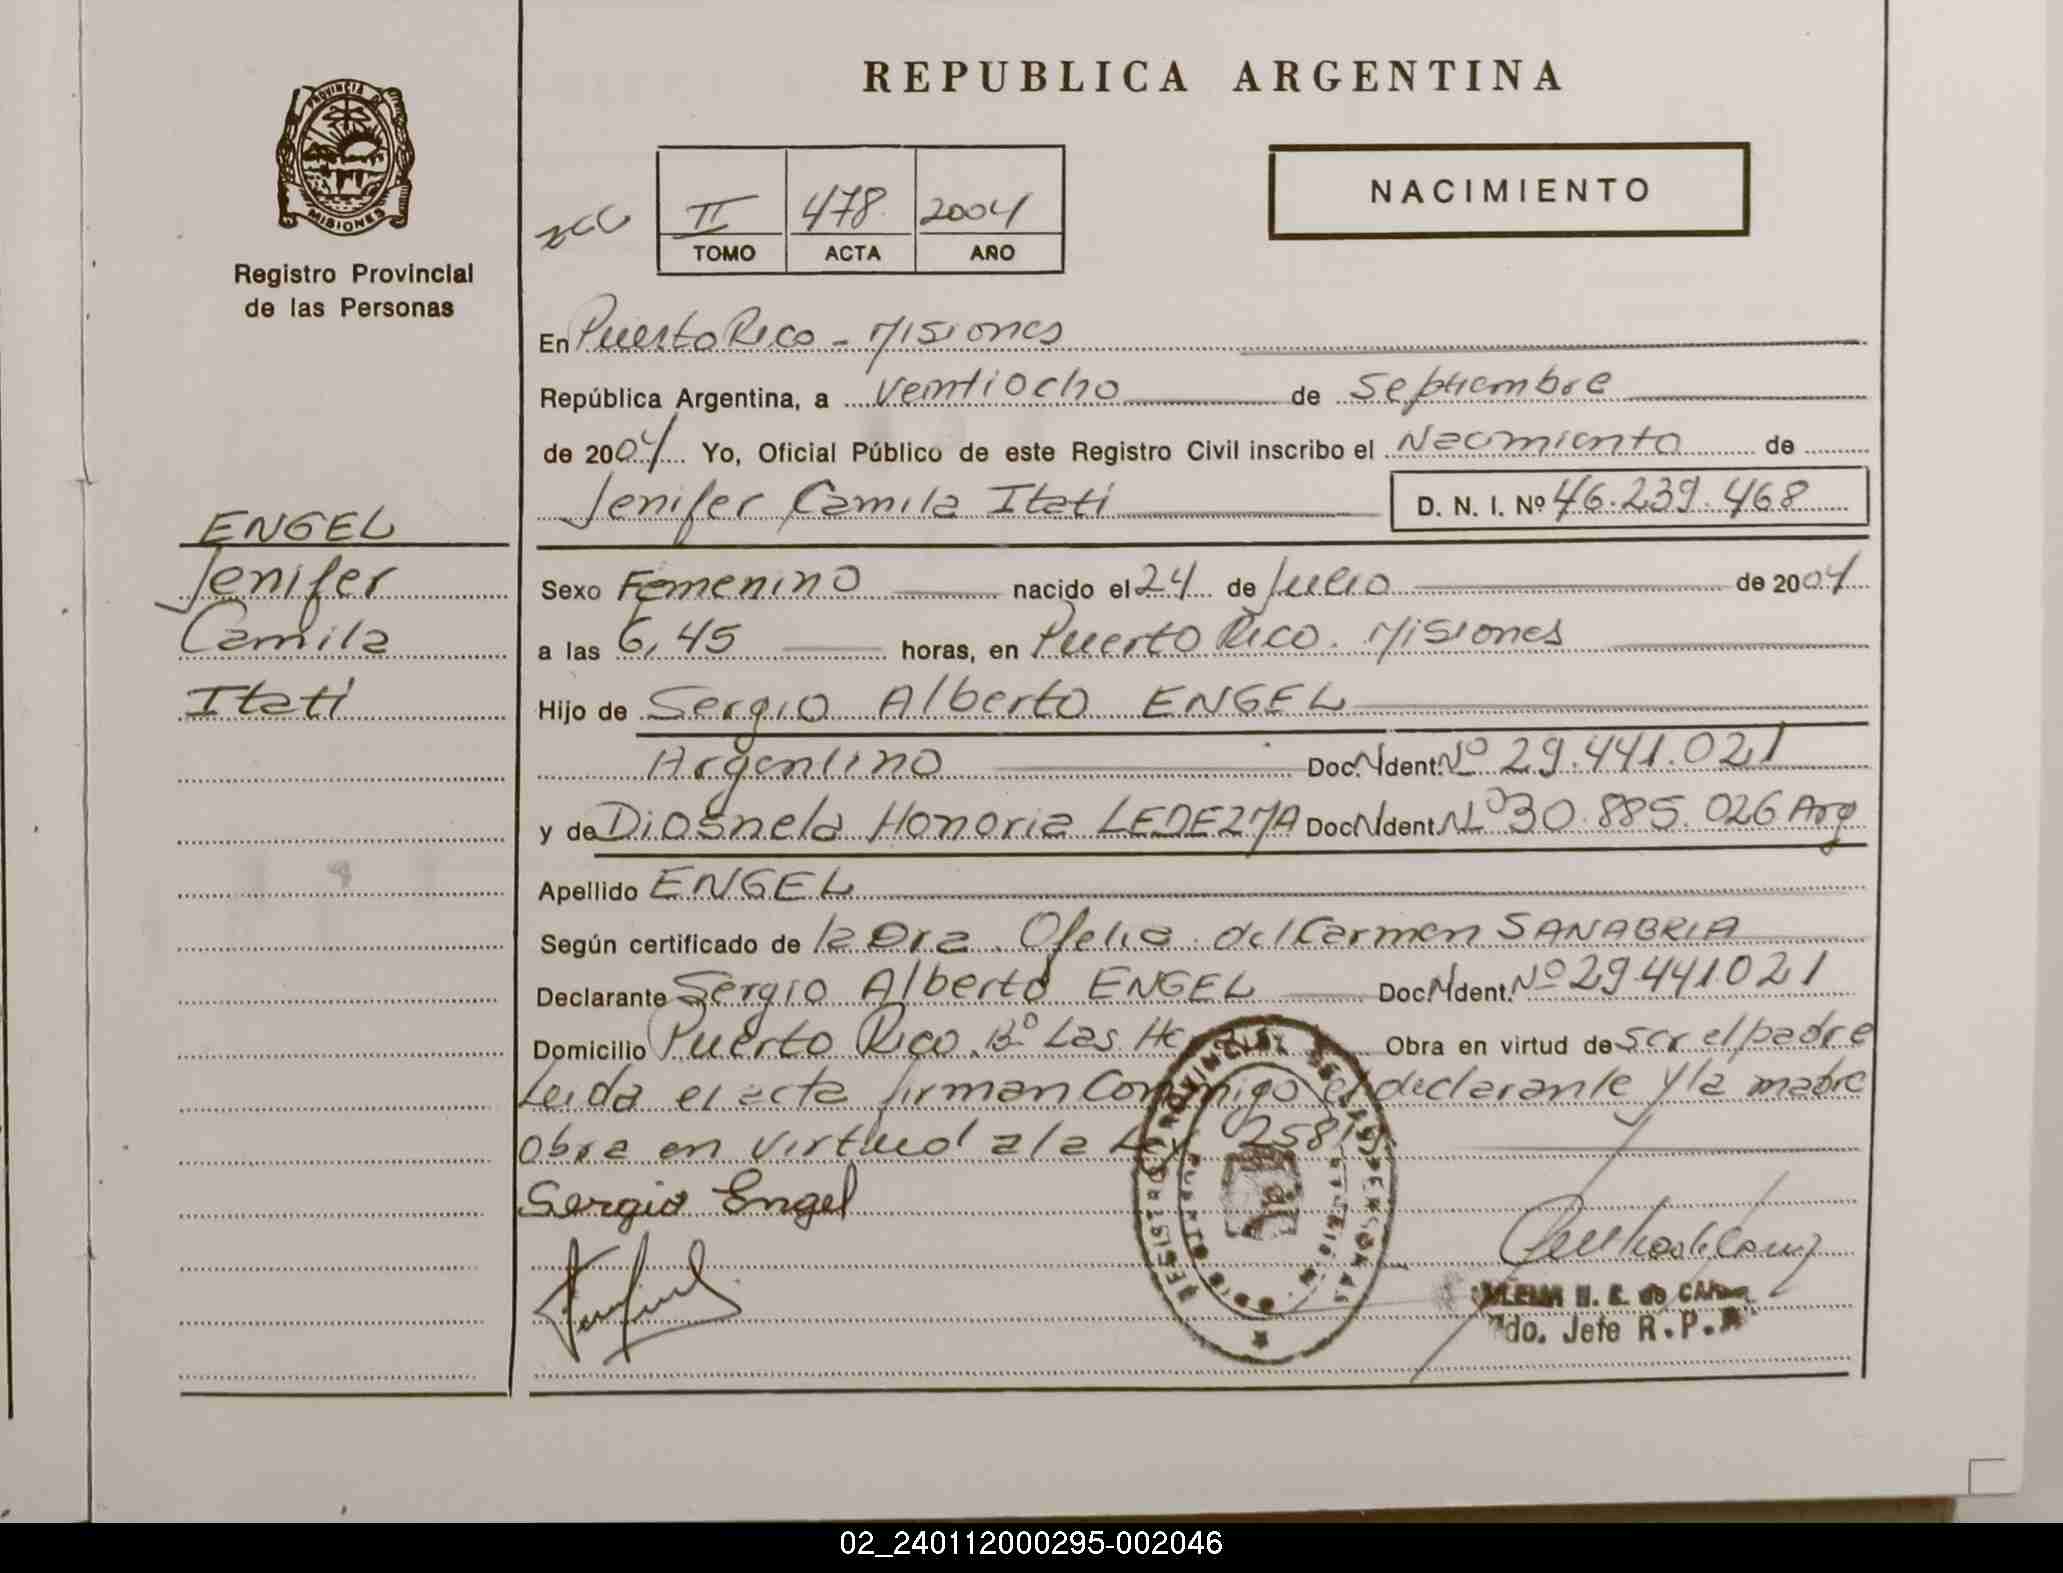 REPUBLICA ARGENTINA
PROVINCIA DE
MISIONES
Registro Provincial
de las Personas
II 478 2004
TOMO ACTA AÑO
NACIMIENTO
En Puerto Rico - Misiones
República Argentina, a veintiocho de Septiembre
de 2004 Yo, Oficial Público de este Registro Civil inscribo el Nacimiento de
Jenifer Camila Itati D. N. I. Nº 46.239.468
ENGEL
Jenifer
Camila
Itati
Sexo Femenino nacido el 24 de Julio de 2004
a las 6,45 horas, en Puerto Rico. Misiones
Hijo de Sergio Alberto ENGEL
Argentino Doc. Ident. Nº 29.441.021
y de Diosnela Honoria LEDEZMA Doc. Ident. Nº 30.885.026 Arg
Apellido ENGEL
Según certificado de la Dra. Ofelia del Carmen SANABRIA
Declarante Sergio Alberto ENGEL Doc. Ident. Nº 29.441.021
Domicilio Puerto Rico. Bº Las Obra en virtud de ser el padre
Leida el acta firman Conmigo el declarante y la madre
obra en virtud a la Ley 25819
Sergio Engel
REGISTRO PROVINCIAL DE LAS PERSONAS
MISIONES
H. E. de
do. Jefe R.P.
02_240112000295-002046